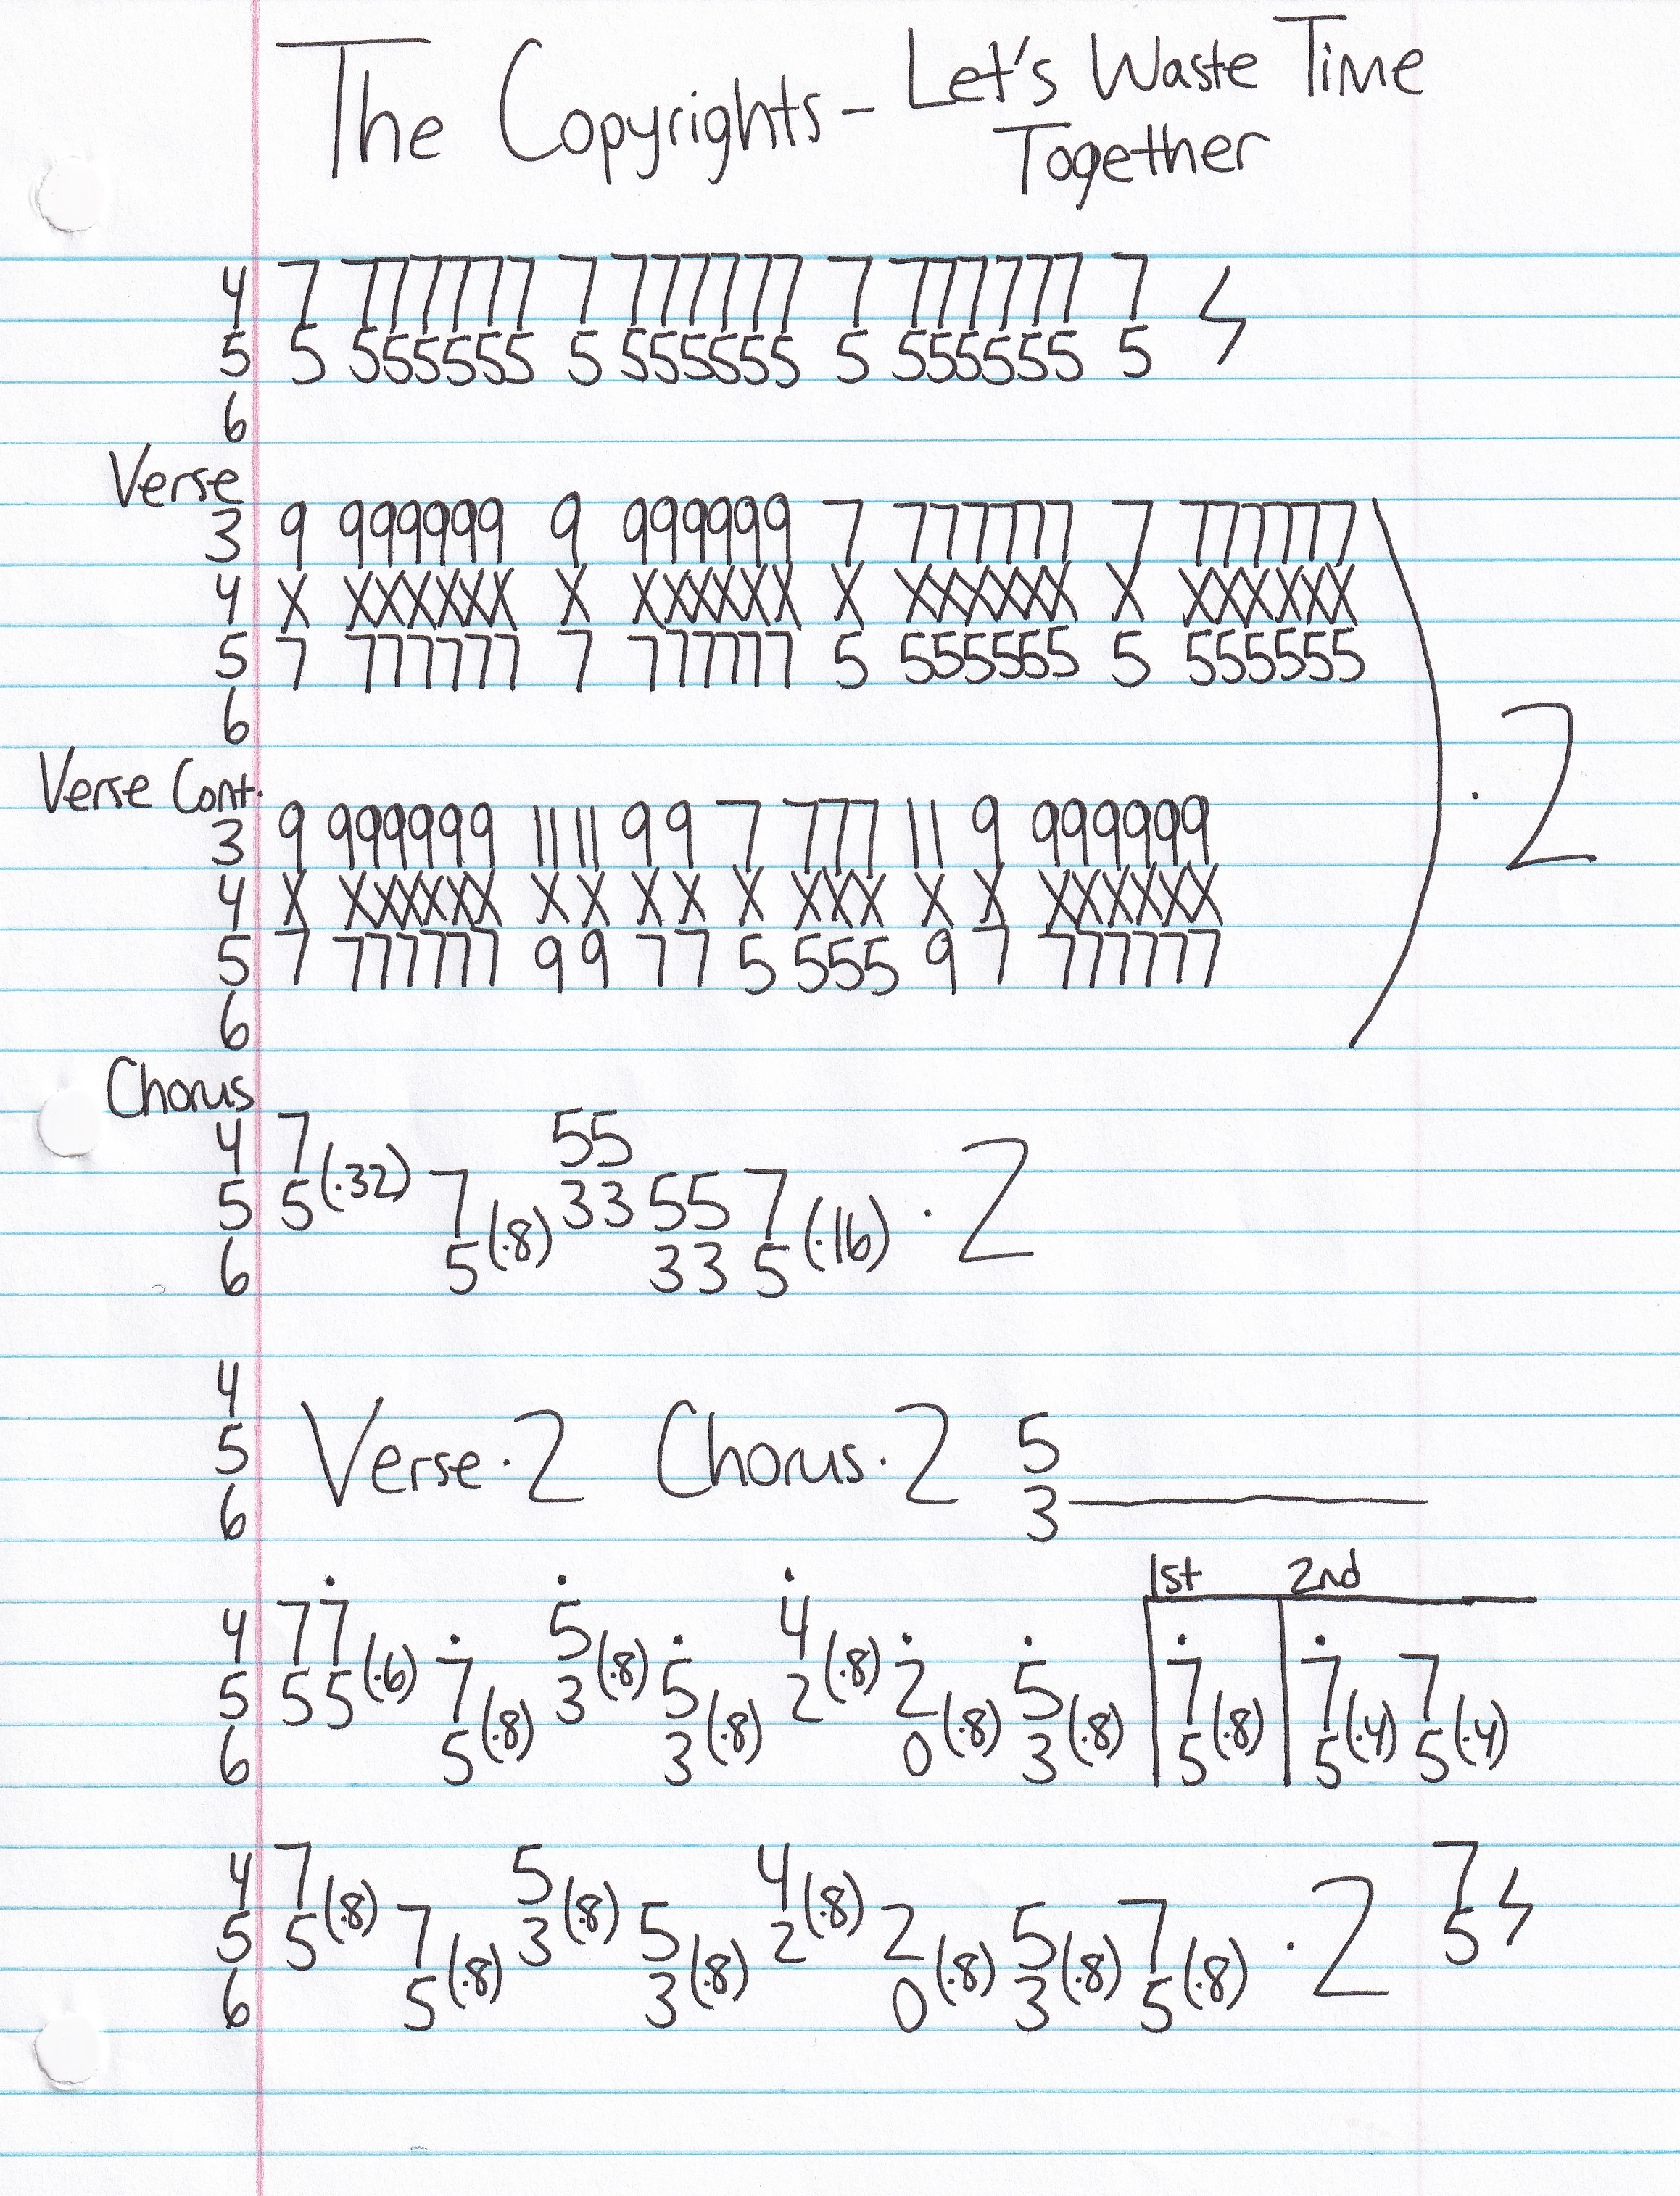 The Copyrights - Let's Waste Time
Together
4 7 777777 7 777777 7 777777 7
5 5 555555 5 555555 5 555555 5
6
Verse
3 9 999999 9 999999 7 777777 7 777777
4 X XXXXXX X XXXXXX X XXXXXX X XXXXXX
5 7 777777 7 777777 5 555555 5 555555
6
· 2
Verse Cont.
3 9 999999 11 11 9 9 7 777 11 9 999999
4 X XXXXXX X X X X X XXX X X XXXXXX
5 7 777777 9 9 7 7 5 555 9 7 777777
6
Chorus
4 7 55
5 5(·32) 7 33 55 7 · 2
6 5(·8) 33 5(·16)
4
5 Verse·2 Chorus·2 5
6 3
1st 2nd
4 77 5 4
5 55(·6) 7 3(·8) 5 2(·8) 2 5 7 7 7
6 5(·8) 3(·8) 0(·8) 3(·8) 5(·8) 5(·4) 5(·4)
4 7 5 4 7
5 5(·8) 7 3(·8) 5 2(·8) 2 5 7 · 2 5
6 5(·8) 3(·8) 0(·8) 3(·8) 5(·8)